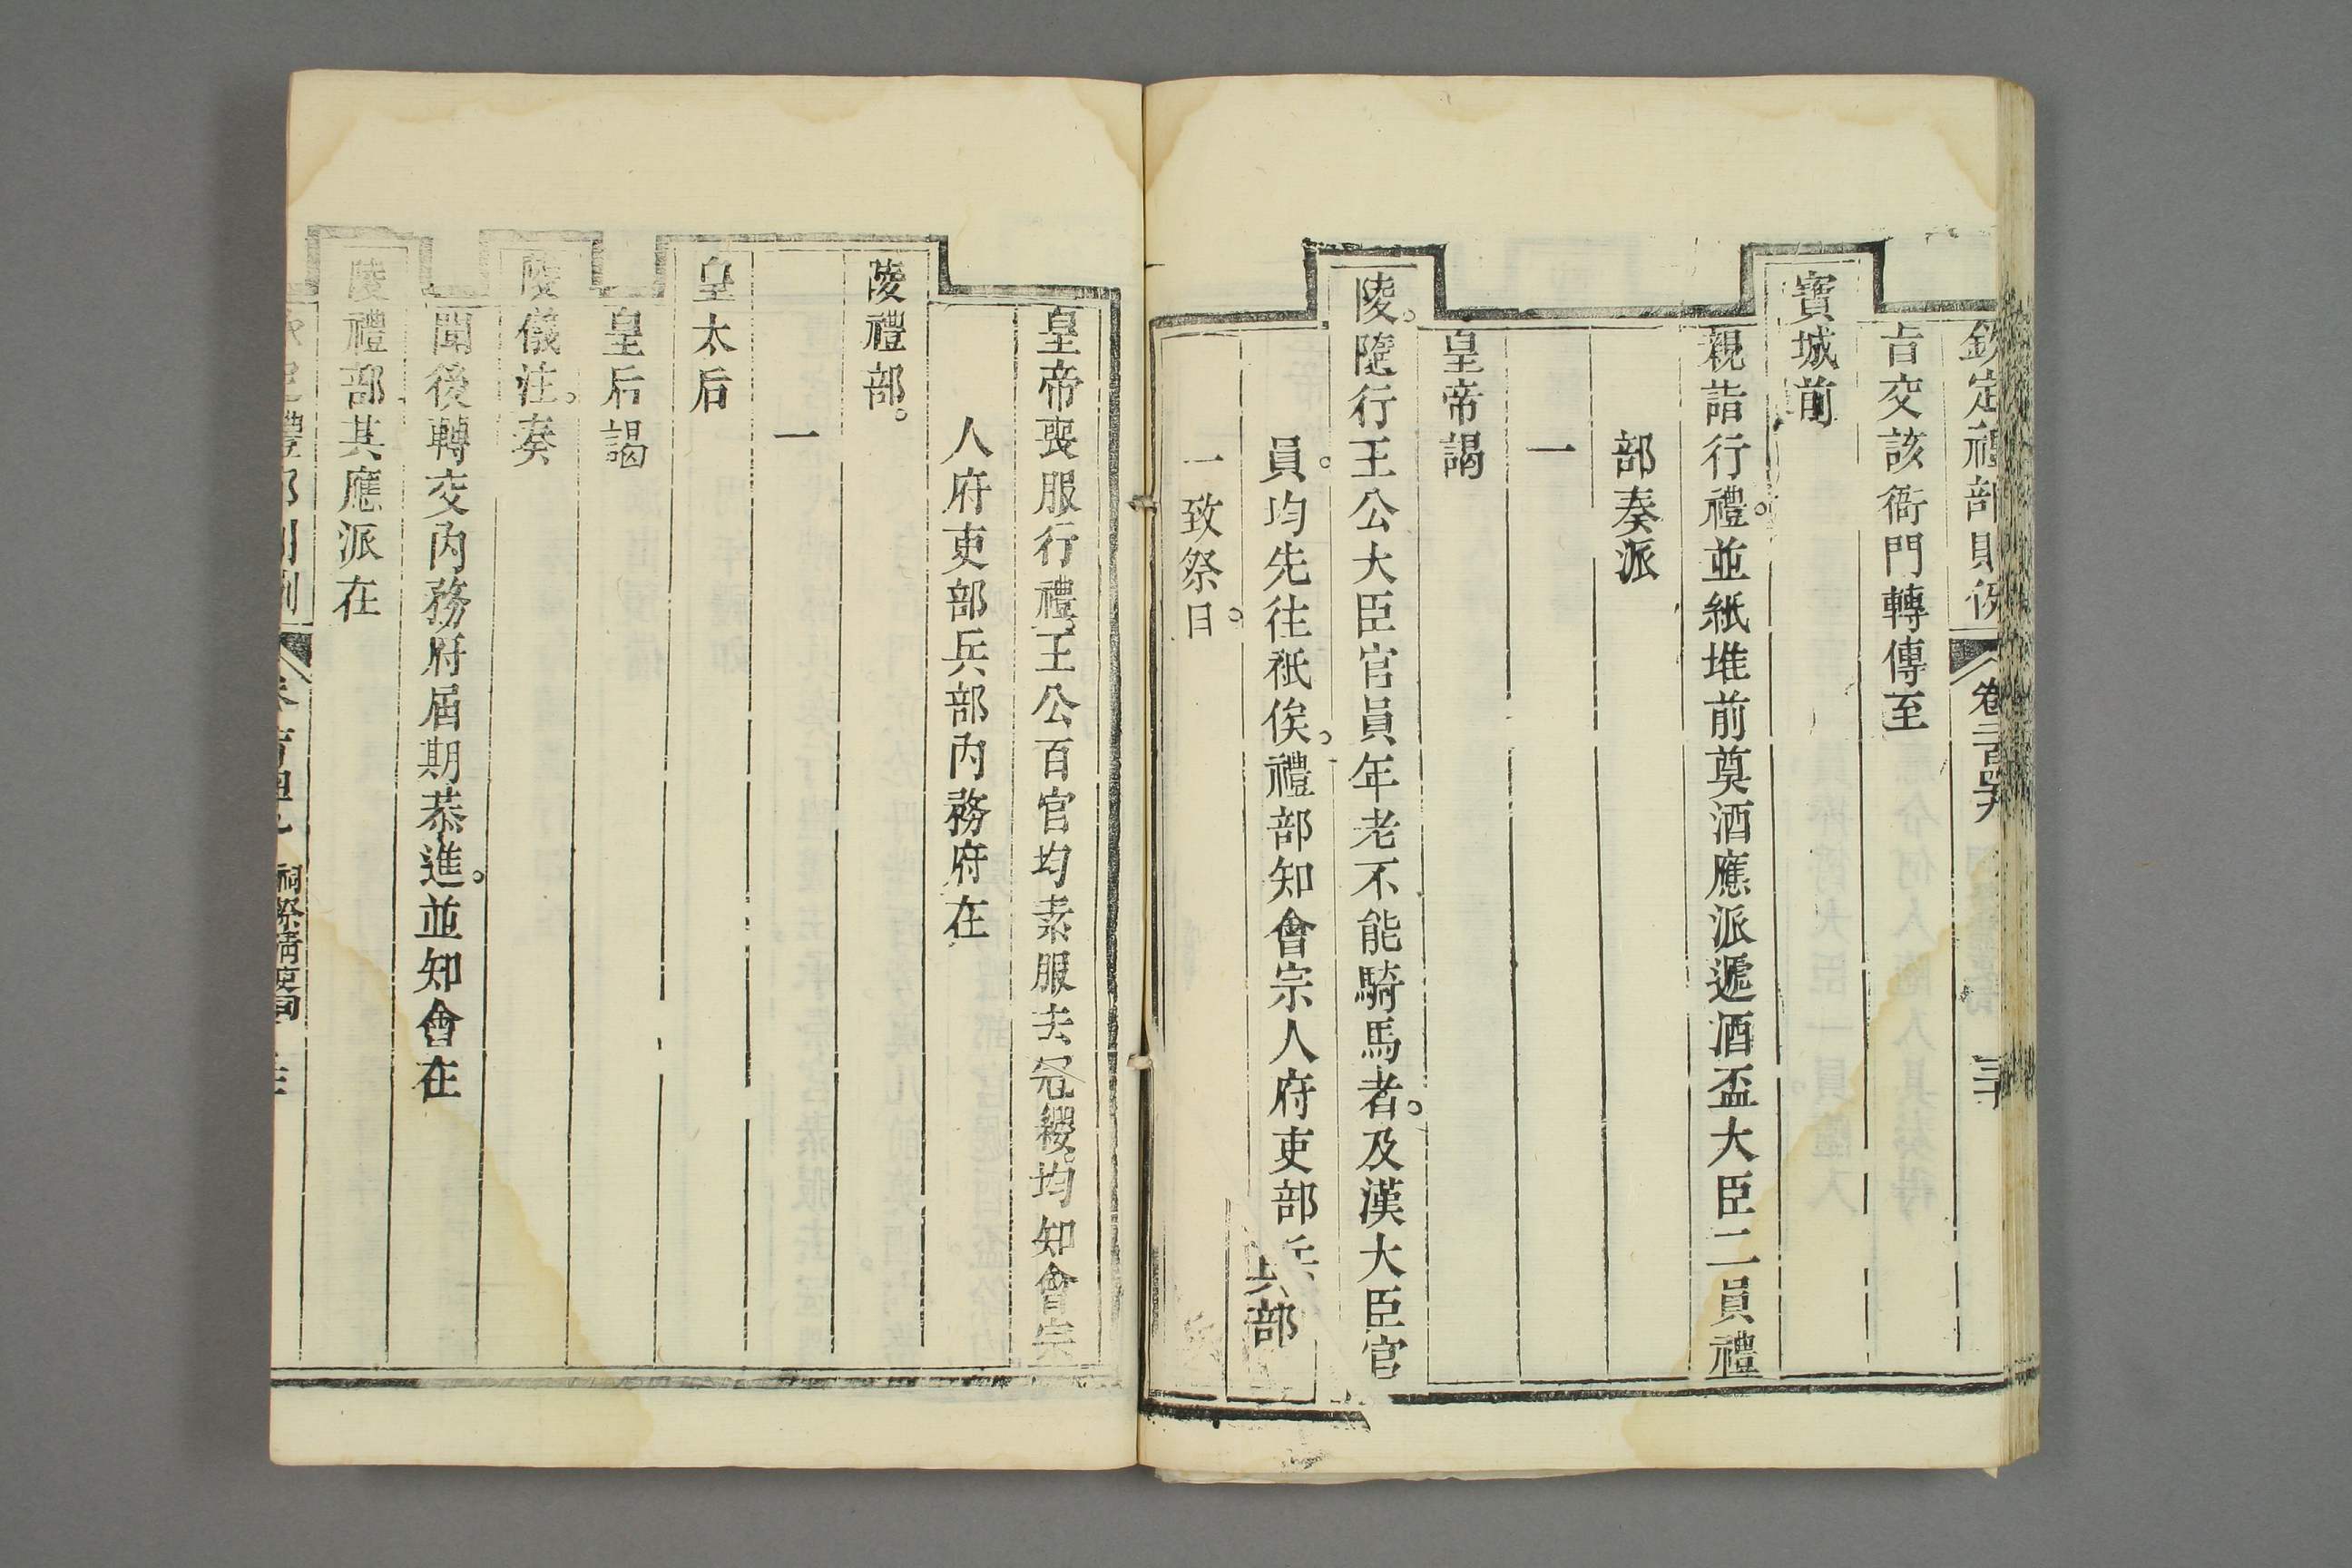 欽定禮部則例 卷二百罕九 三十
㫖交該衙門轉傳至
寶城前
親詣行禮。並紙堆前奠酒應派遞酒盃大臣二員禮
部奏派
一
皇帝謁
陵。隨行王公大臣官員年老不能騎馬者。及漢大臣官
員。均先往祇俟。禮部知會宗人府吏部兵部
一致祭日。
皇帝喪服行禮。王公百官均素服去冠纓。均知會宗
人府吏部兵部內務府在
陵禮部。
一
皇太后
皇后謁
陵儀注。奏
聞後轉交內務府屆期恭進。並知會在
陵禮部其應派在
定禮部則例 祠祭清吏司